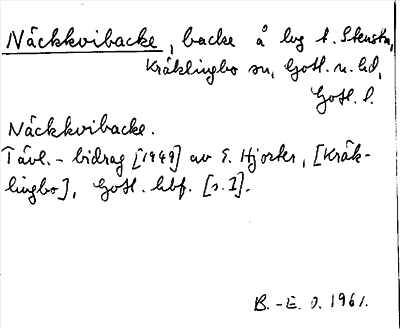 Näckkvibacke, backe å lvg t. Stenstu,
Kräklingbo sn, Gotl. n. hd,
Gotl. l.
Näckkvibacke.
Tävl.-bidrag [1949] av E. Hjorter, [Kräk-
lingbo], Gotl. hbf. [s. 1].
B.-E. O. 1961.